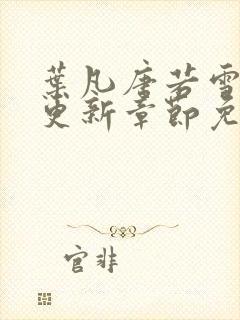 葉凡唐若雪
更新章節免
官非